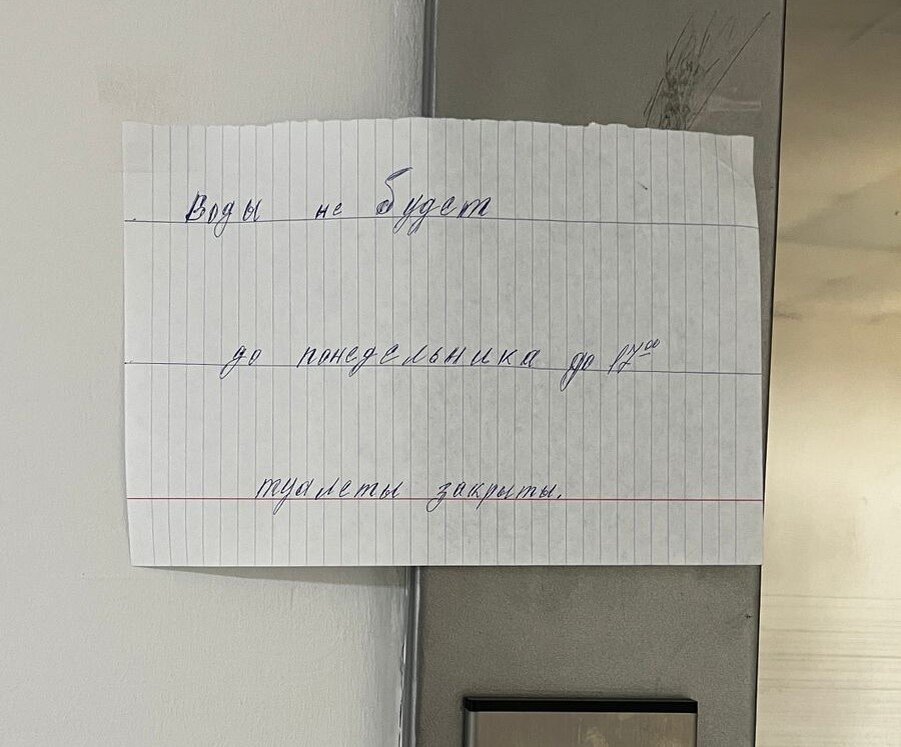 Воды не будет
до понедельника до 17⁰⁰
туалеты закрыты.